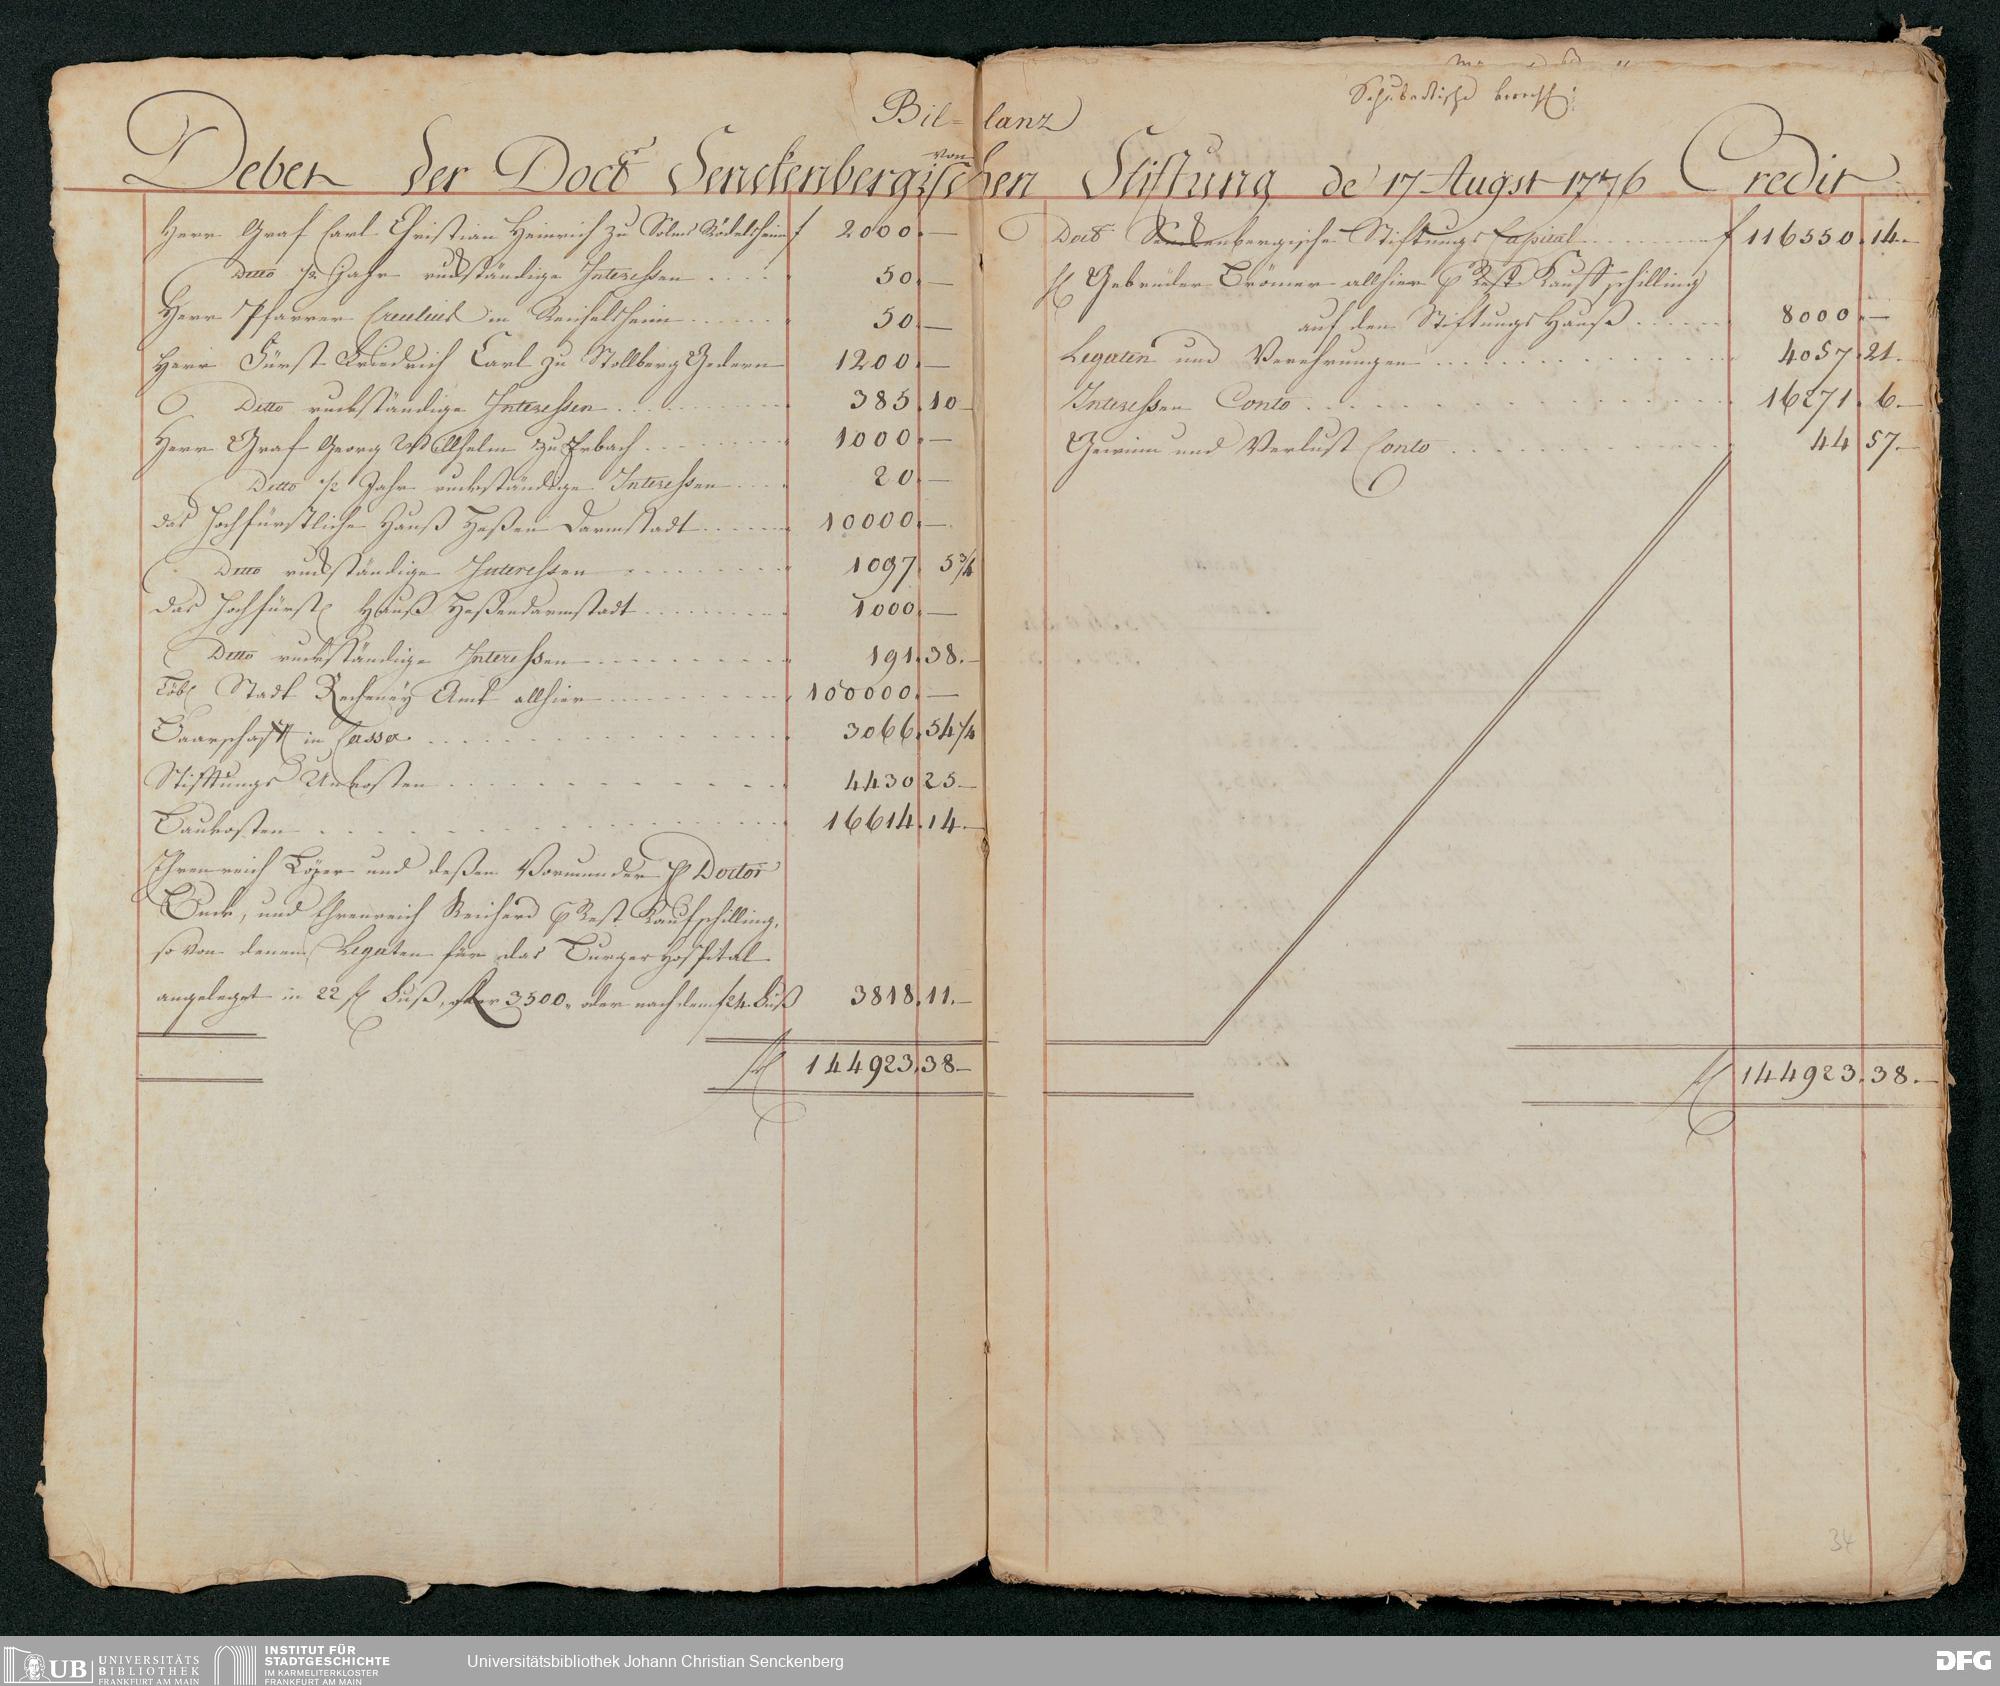 Bil-lanz
Schubertische
Debet der Doctr Senckenbergischen Stiftung von de 17 Augst 1776 Credit
Herr Graf Carl Christian Heinrich zu Solms Rödelheim f 2000. —
Ditto 1/2 Jahr rückständige Interessen . . . . 50. —
Herr Pfarrer in Reichelsheim . . . . . . 50. —
Herr Fürst Friedrich Carl zu Stollberg Gedern 1200. —
Ditto ruckständige Interessen . . . . . . 385. 10 —
Herr Graf Georg Willhelm zu Erbach . . . . . . 1000. —
Ditto 1/2 Jahr ruckständige Interessen . . . . 20. —
das Hochfürstliche Hauß Heßen Darmstadt . . . . . 10000. —
Ditto ruckständige Interessen . . . . . . 1097. 5 3/4
das Hochfürstl Hauß Heßendarmstadt . . . . . . 1000. —
Ditto ruckständige Interessen . . . . . . 191. 38. —
Löbl Stadt Recheney Amt allhier . . . . . . 100000. —
Baarschafft in Cassa . . . . . . 3066. 54 1/4
Stifftungs Unkosten . . . . . . 4430. 25 —
Baukosten . . . . . . 16614. 14. —
Ehrenreich und deßen Vormunder H Doctor
Buck, und Ehrenreich Reichard p Rest Kaufschilling,
so von denen Legaten für das Burger Hospital
angeleget in 22 fl Fuß, 3500,, oder nach dem f 24. Fuß 3818. 11. —
fl 144923. 38 —
Doctr Senckenbergische Stiftungs Capital . . . . . . f 116550. 14. —
H Gebrüder Brömer allhier p Rest Kauffschilling
auf dem Stiftungs Hauße . . . . . 8000. —
Legaten und Verehrungen . . . . . . 4057. 21. —
Interessen Conto . . . . . . 16271. 6. —
Gewinn und Verlust Conto . . . . . . 44. 57. —
fl 144923. 38. —
34
UB UNIVERSITÄTS
BIBLIOTHEK
FRANKFURT AM MAIN
INSTITUT FÜR
STADTGESCHICHTE
IM KARMELITERKLOSTER
FRANKFURT AM MAIN
Universitätsbibliothek Johann Christian Senckenberg
DFG